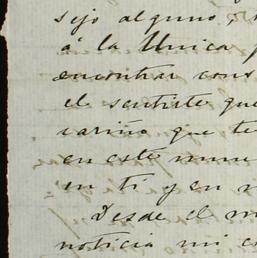 sejo alguno,
á la Unica
encontrar cons
el sentirte que
cariño que te
en este mun
en ti y en
Desde el m
noticia mi c